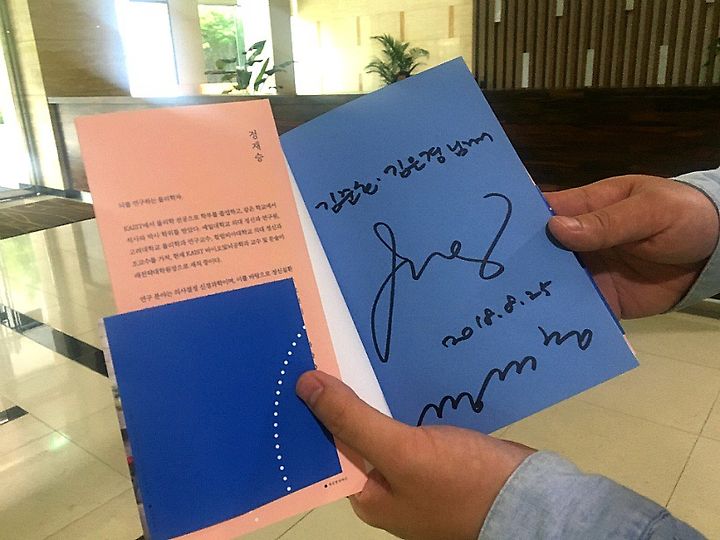 정재승
뇌를 연구하는 물리학자
KAIST에서 물리학 전공으로 학부를 졸업하고, 같은 학교에서
석사와 박사 학위를 받았다. 예일대학교 의대 정신과 연구원,
고려대학교 물리학과 연구교수, 컬럼비아대학교 의대 정신과
조교수를 거쳐, 현재 KAIST 바이오및뇌공학과 교수 및 문술미
래전략대학원장으로 재직 중이다.
연구 분야는 의사결정 신경과학이며, 이를 바탕으로 정신질환
김은경 님께
2018.8.25